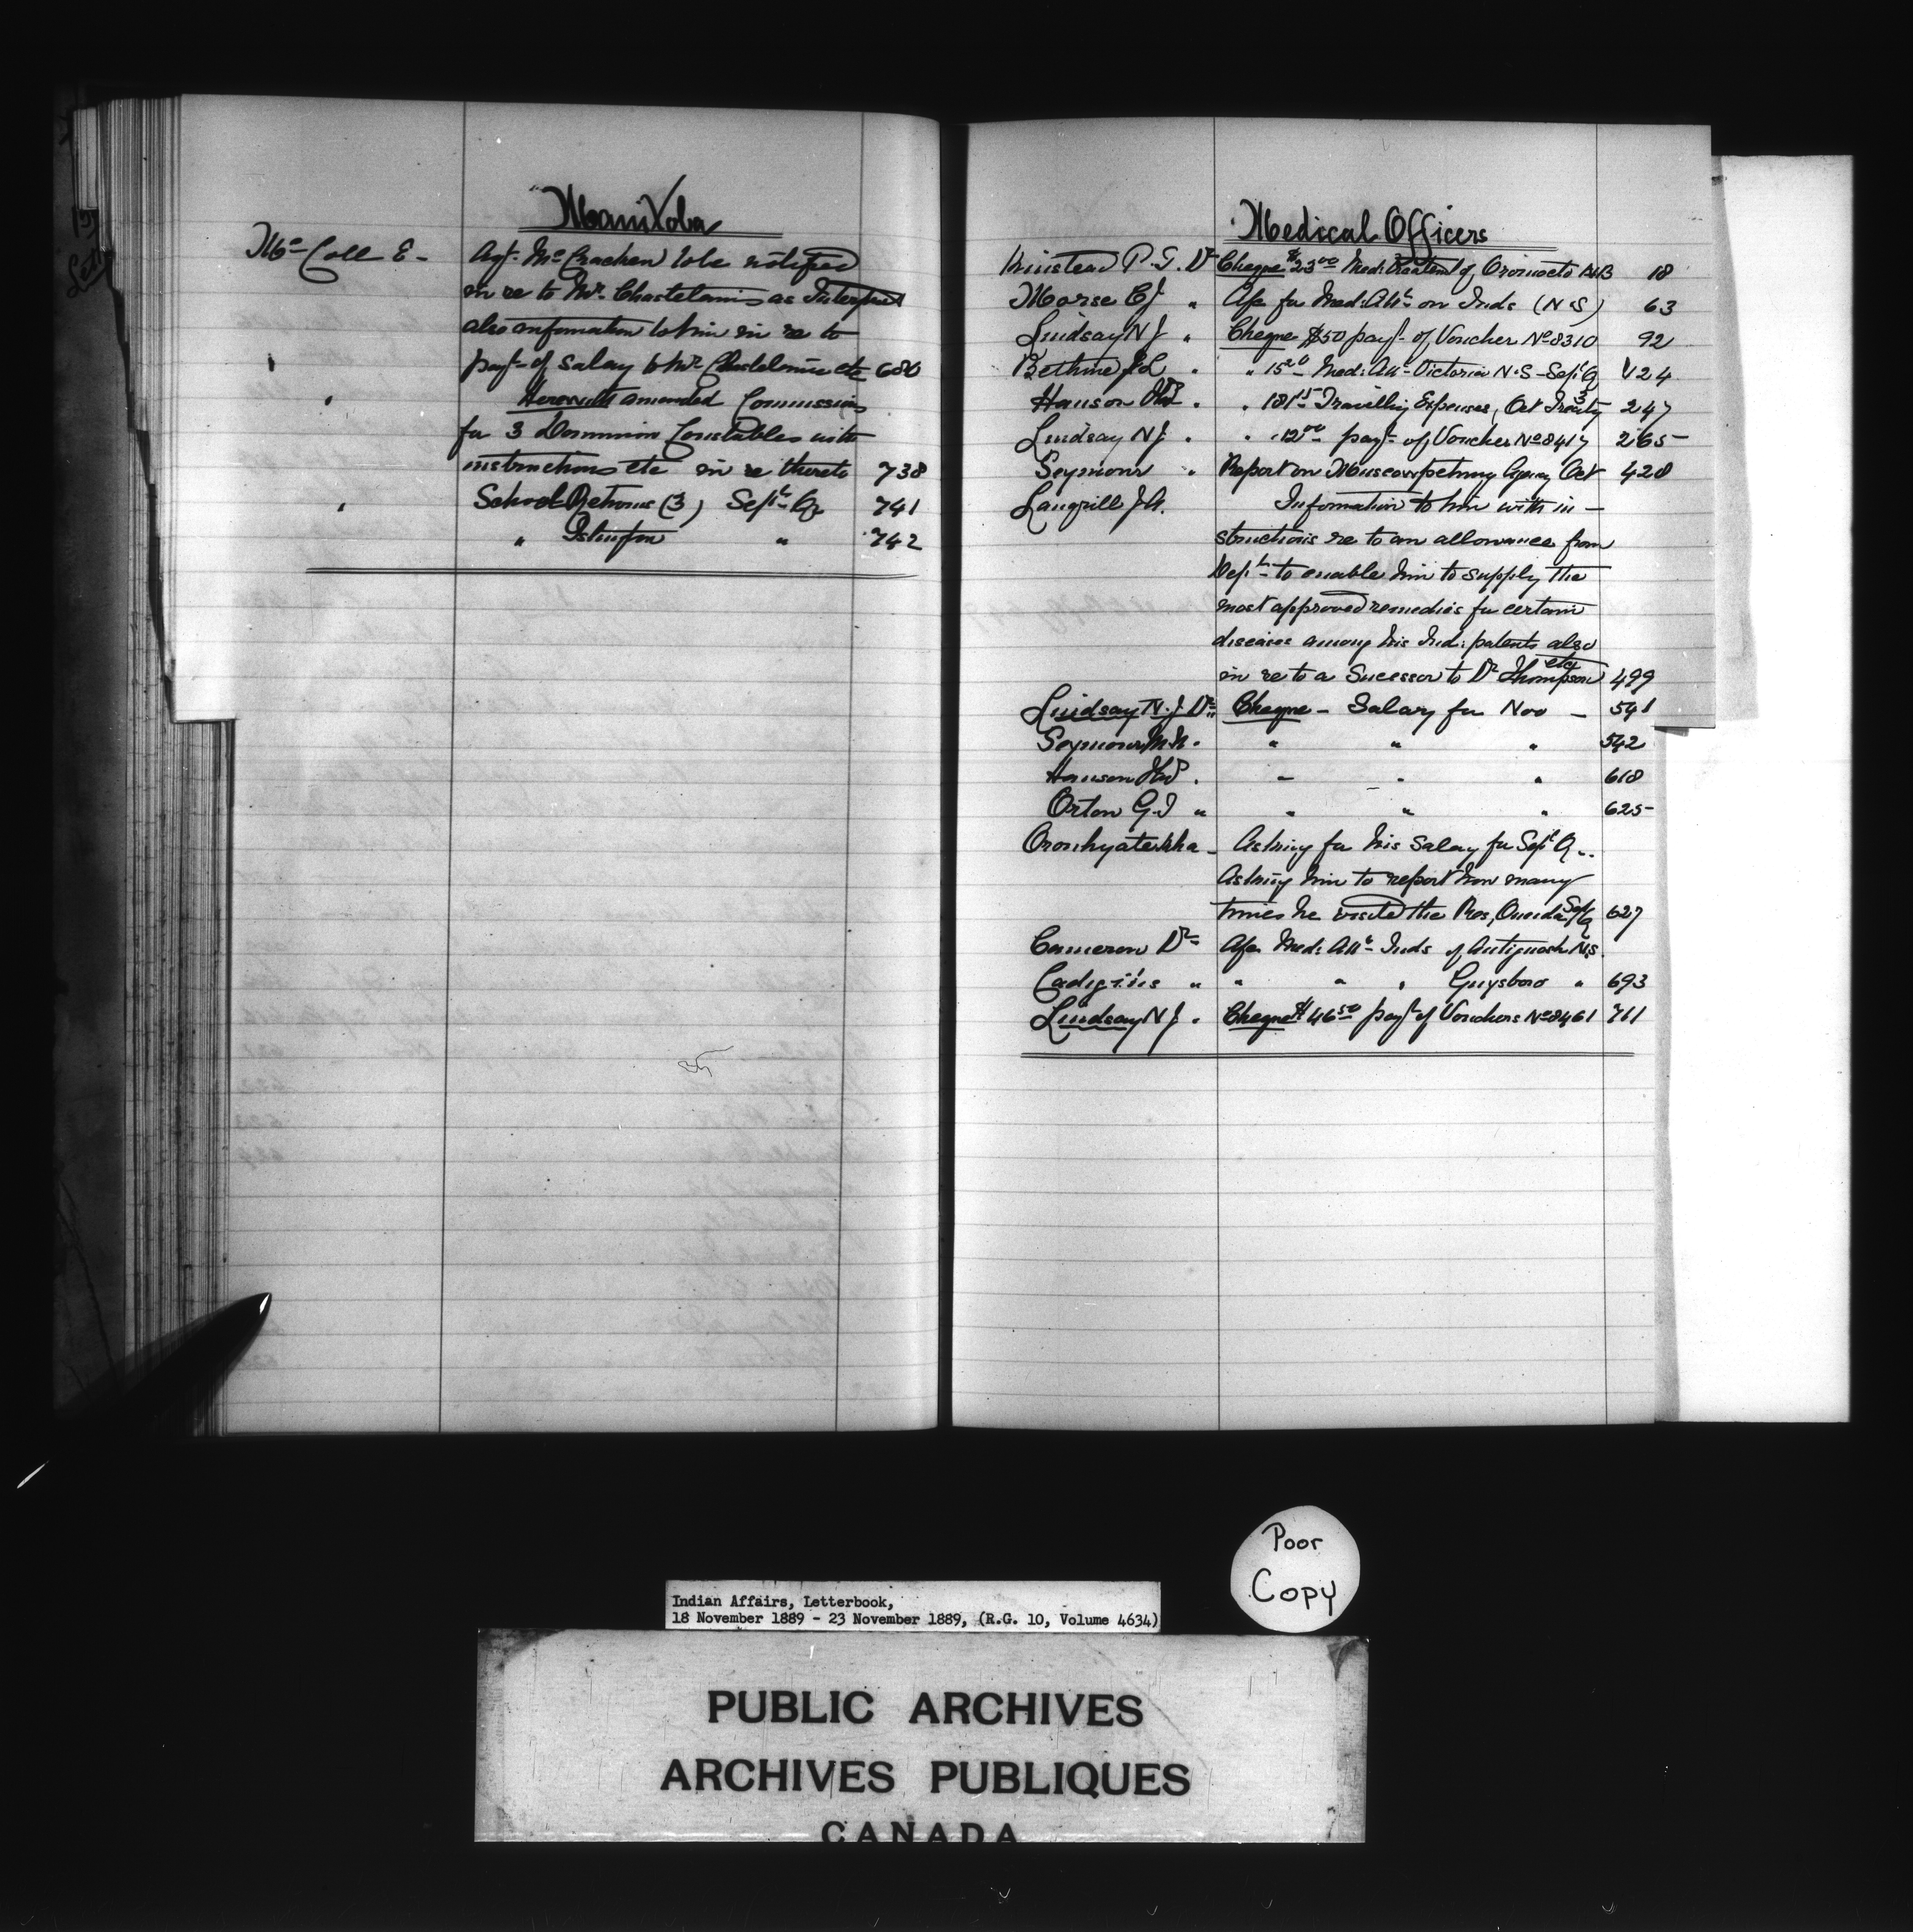 Manitoba
McColl E - Agt. McCracken to be notified
in re to Mr. Chastelanis as Interpret
also information to him in re to
" payt of Salary to Mr. Chastelanis etc 680
" Herewith amended Commissions
for 3 Dominion Constables with
instructions etc in re thereto 738
" School Returns (3) Sept Qr 741
" " Islington " 742
Medical Officers
Kinstead P. T. Dr Cheque $23 00 Med: Treatmt of Oromocto N.B 18
Morse C J " A/c for Med: Att on Inds (N.S) 63
Lindsay N J " Cheque $50 payt of Voucher No 8310 92
Bethune J L " " 15 20 Med: Att Victoria N.S - Sept Q 124
Hanson " " 181 15 Travelling Expenses, Oct Treaty 3 247
Lindsay N J " " 12 00 payt of Voucher No 8417 265
Seymour " Report on Muscowpetung Agency Oct 420
Langrill J A. Information to him with in -
structions re to an allowance from
Dept to enable him to supply the
most approved remedies for certain
diseases among his Ind: patents also
in re to a Sucessor to Dr Thompson etc 499
Lindsay N. J. Dr Cheque - Salary for Nov - 541
Seymour M. M. " " " " 542
Hanson " " " " 618
Orton G. T " " " " 625
Oronhyatekha - Asking for his Salary for Sept Q..
Asking him to report how many
times he visited the Res, Oneida Sept Q 627
Cameron Dr A/c Med: Att Inds of Antigonish N.S.
Cadigins " " " " Guysboro " 693
Lindsay N J. " Cheque $46 50 payt of Vouchers No 8461 711
Poor
Copy
Indian Affairs, Letterbook,
18 November 1889 - 23 November 1889, (R.G. 10, Volume 4634)
PUBLIC ARCHIVES
ARCHIVES PUBLIQUES
CANADA